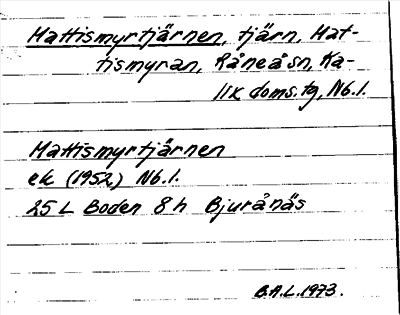 Mattismyrtjärnen, tjärn, Mat-
tismyran, Råneå sn, Ka-
lix doms.tg, Nb.l.
Mattismyrtjärnen
ek (1952) Nb.l.
25 L Boden 8 h Bjurånäs
B.A.L. 1973.